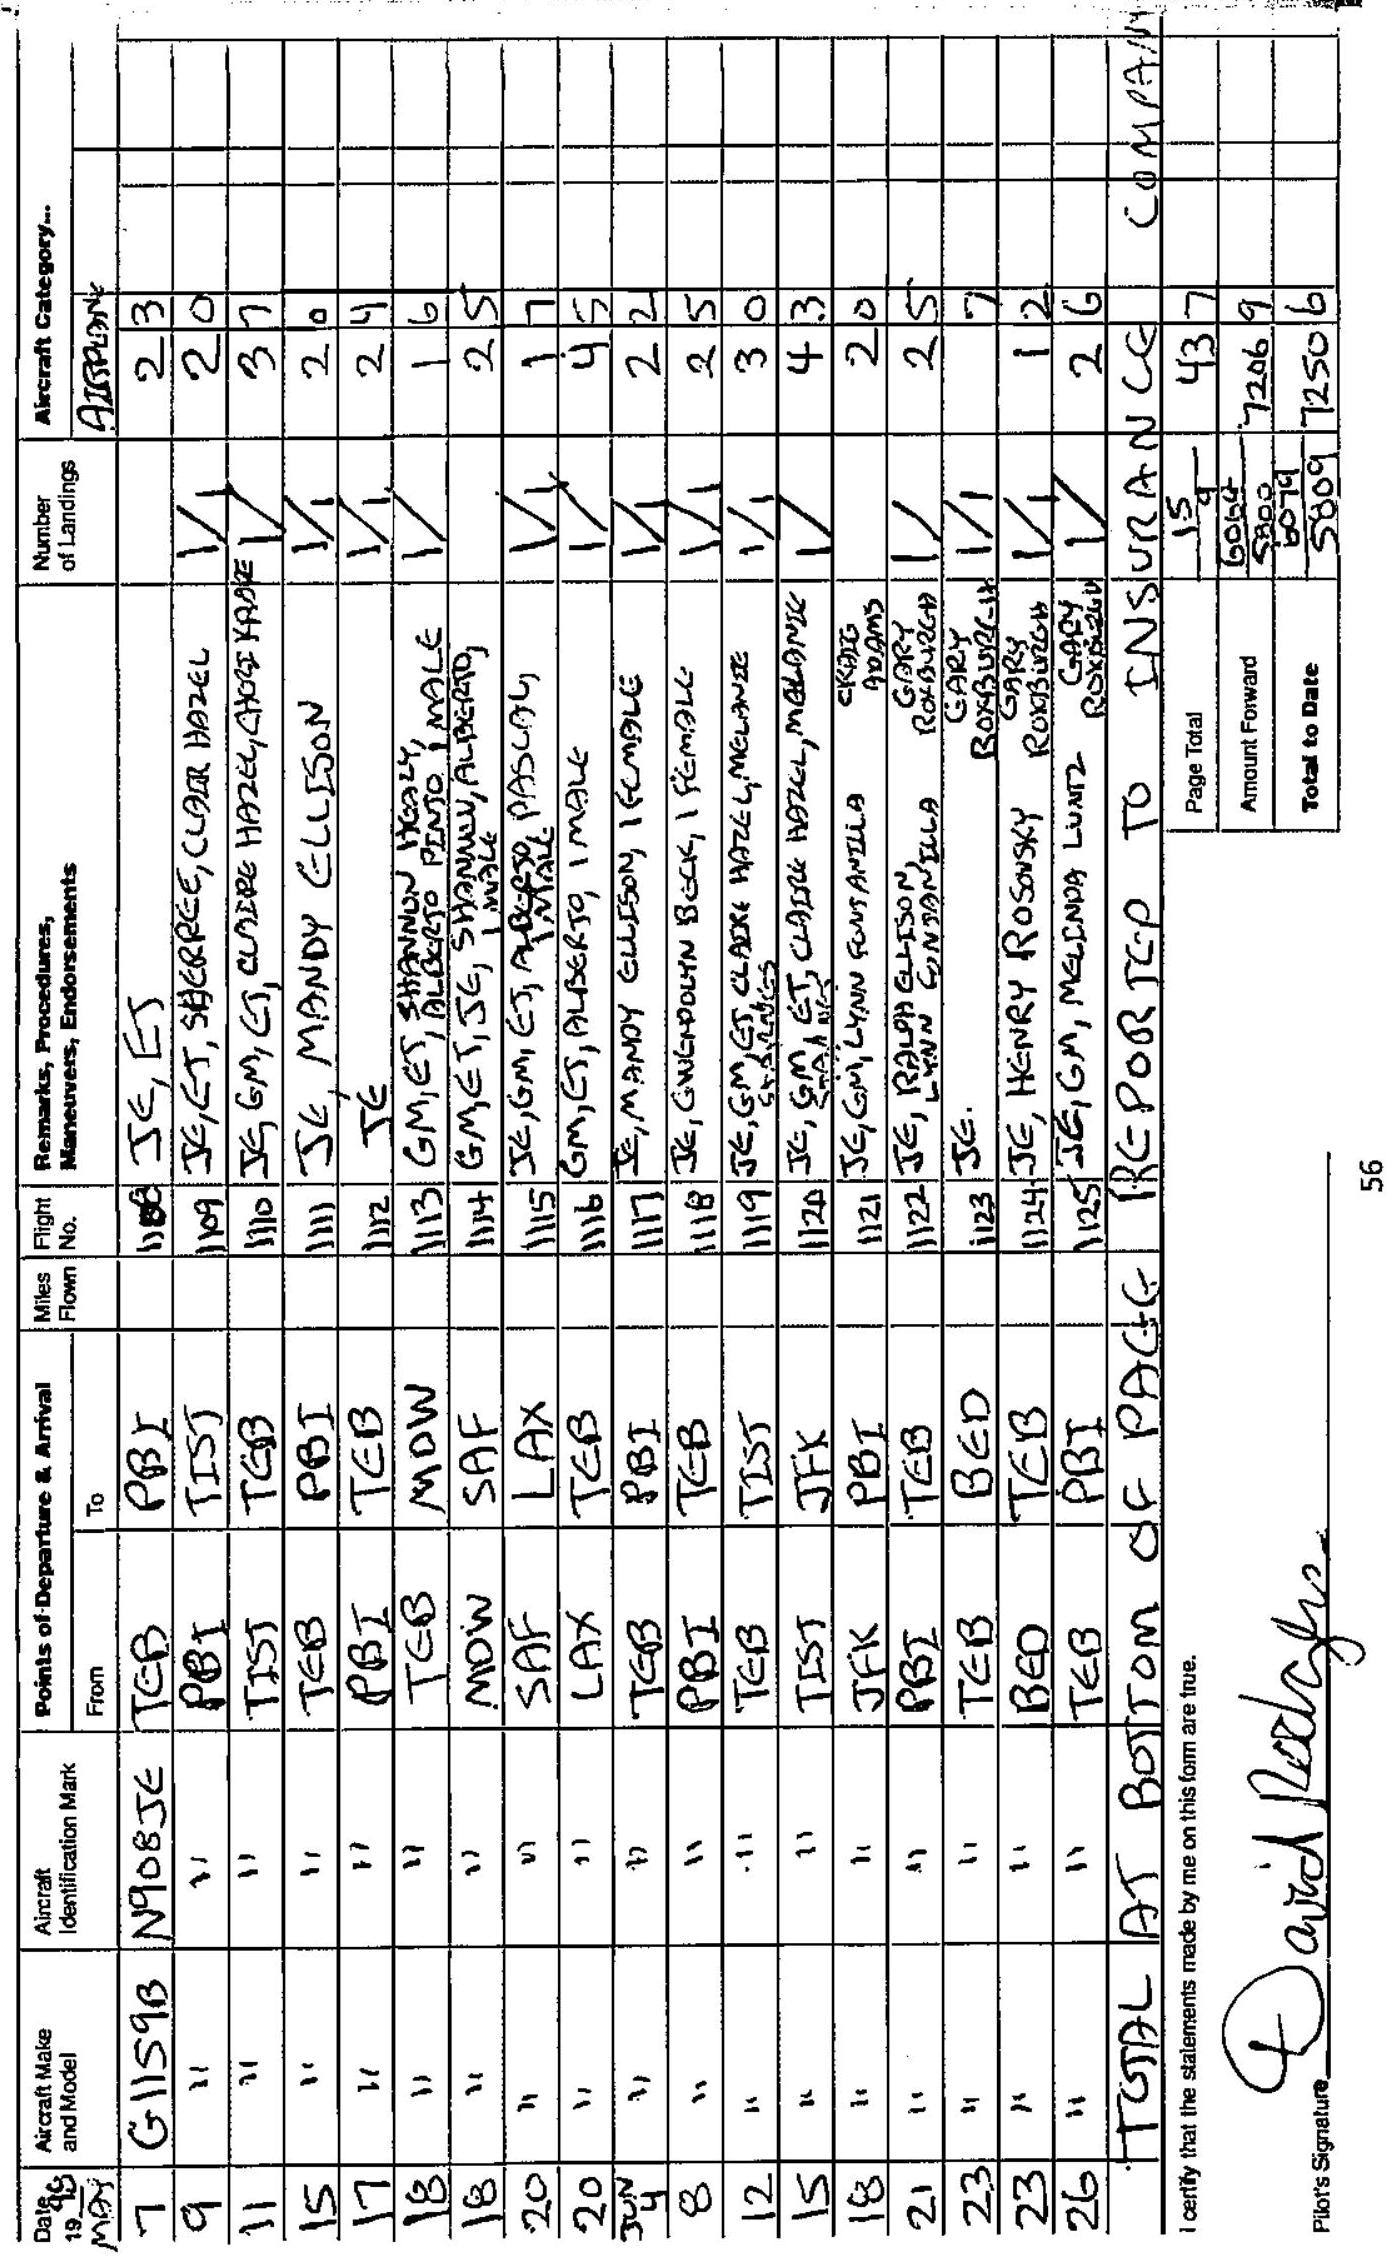 Date 19 98 Aircraft Make and Model Aircraft Identification Mark Points of Departure & Arrival Miles Flown Flight No. Remarks, Procedures, Maneuvers, Endorsements Number of Landings Aircraft Category...
MAY From To AIRPLANE
7 G1159B N908JE TEB PBI 1108 JE, ET 2 3
9 " " PBI TIST 1109 JE, ET, SHERREE, CLAIR HAZEL 1/1 2 0
11 " " TIST TEB 1110 JE, GM, ET, CLAIRE HAZEL, 1/ 3 7
15 " " TEB PBI 1111 JE, MANDY ELLISON 1/1 2 0
17 " " PBI TEB 1112 JE 1/1 2 4
18 " " TEB MDW 1113 GM, ET, SHANNON HEALY, ALBERTO PINTO, 1 MALE 1/ 1 6
18 " " MDW SAF 1114 GM, ET, JE, SHANNON, ALBERTO, 1 MALE 2 5
20 " " SAF LAX 1115 JE, GM, ET, ALBERTO, PASCAL, 1 MALE 1/1 1 7
20 " " LAX TEB 1116 GM, ET, ALBERTO, 1 MALE 1/ 4 5
JUN 4 " " TEB PBI 1117 JE, MANDY ELLISON, 1 FEMALE 1/1 2 2
8 " " PBI TEB 1118 JE, GWENDOLYN BECK, 1 FEMALE 1/1 2 5
12 " " TEB TIST 1119 JE, GM, ET, CLAIRE HAZEL, MELANIE 1/1 3 0
15 " " TIST JFK 1120 JE, GM, ET, CLAIRE HAZEL, MELANIE 1/ 4 3
18 " " JFK PBI 1121 JE, GM, LYNN FONTANILLA CRAIG ADAMS 2 0
21 " " PBI TEB 1122 JE, RALPH ELLISON, LYNN FONTANILLA GARY ROXBURGH 1/ 2 5
23 " " TEB BED 1123 JE. GARY ROXBURGH 1/1 7
23 " " BED TEB 1124 JE, HENRY ROSOVSKY GARY ROXBURGH 1/1 1 2
26 " " TEB PBI 1125 JE, GM, MELINDA LUNTZ GARY ROXBURGH 1/ 2 6
TOTAL AT BOTTOM OF PAGE REPORTED TO INSURANCE COMPANY
I certify that the statements made by me on this form are true.
Page Total 15 9 43 7
Amount Forward 6064 5800 7206 9
Total to Date 6079 5809 7250 6
Pilot's Signature David Rodgers
56